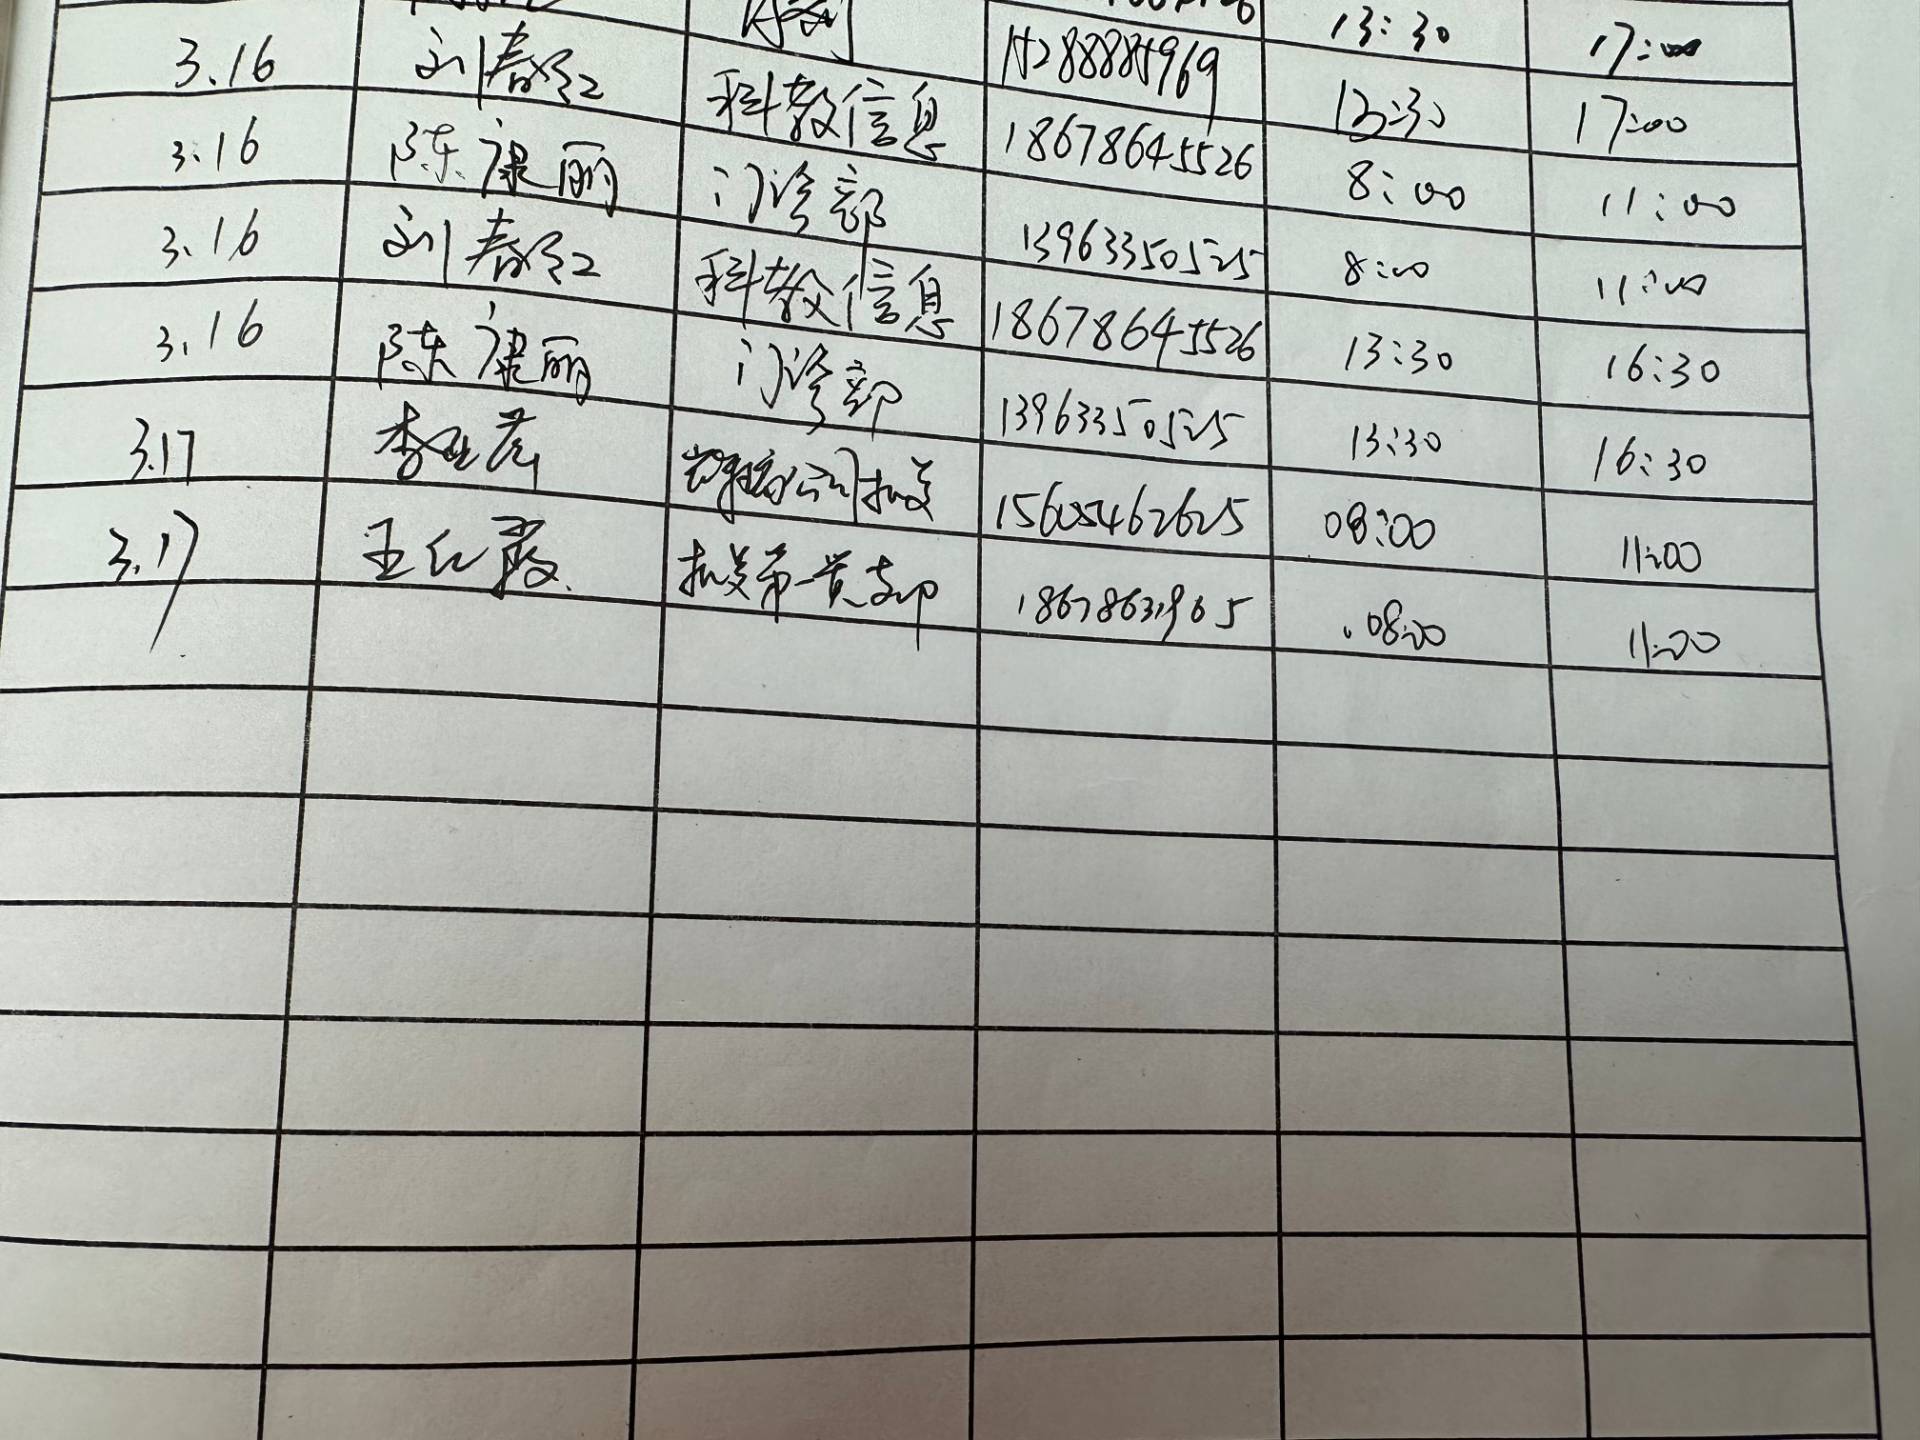 13:30 17:00
3.16 刘春红 科教信息 15288884969 13:30 17:00
3.16 陈康丽 门诊部 18678645526 8:00 11:00
3.16 刘春红 科教信息 13963350525 8:00 11:00
3.16 陈康丽 门诊部 18678645526 13:30 16:30
3.17 李 13963350525 13:30 16:30
3.17 王红霞 15605462625 08:00 11:00
机关第一党支部 08:00 11:00